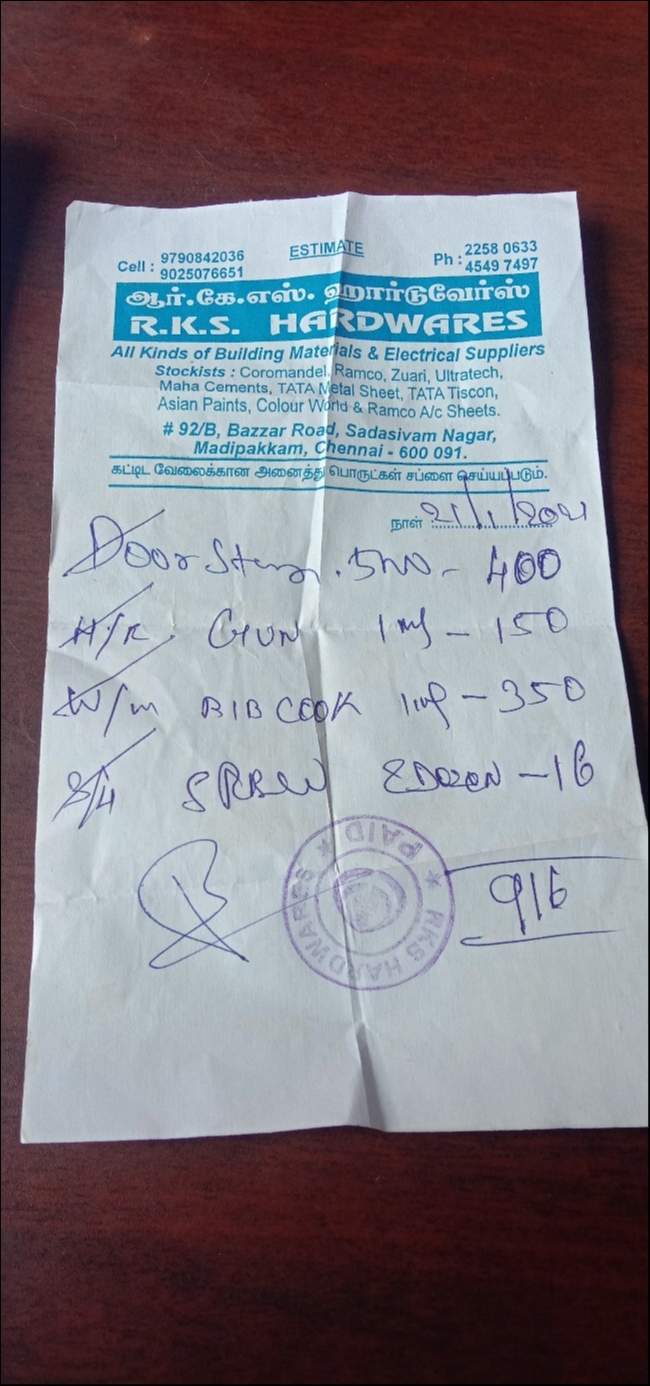 ESTIMATE
Cell : 9790842036
9025076651
Ph : 2258 0633
4549 7497
ஆர்.கே.எஸ். ஹார்டுவேர்ஸ்
R.K.S. HARDWARES
All Kinds of Building Materials & Electrical Suppliers
Stockists : Coromandel, Ramco, Zuari, Ultratech,
Maha Cements, TATA Metal Sheet, TATA Tiscon,
Asian Paints, Colour World & Ramco A/c Sheets.
# 92/B, Bazzar Road, Sadasivam Nagar,
Madipakkam, Chennai - 600 091.
கட்டிட வேலைக்கான அனைத்து பொருட்கள் சப்ளை செய்யப்படும்.
நாள் 21/1/2021
Door - 400
H/R GUN 1 - 150
W/m BIB COOK 1 - 350
DOZEN - 16
916
RKS HARDWARES ★ PAID ★